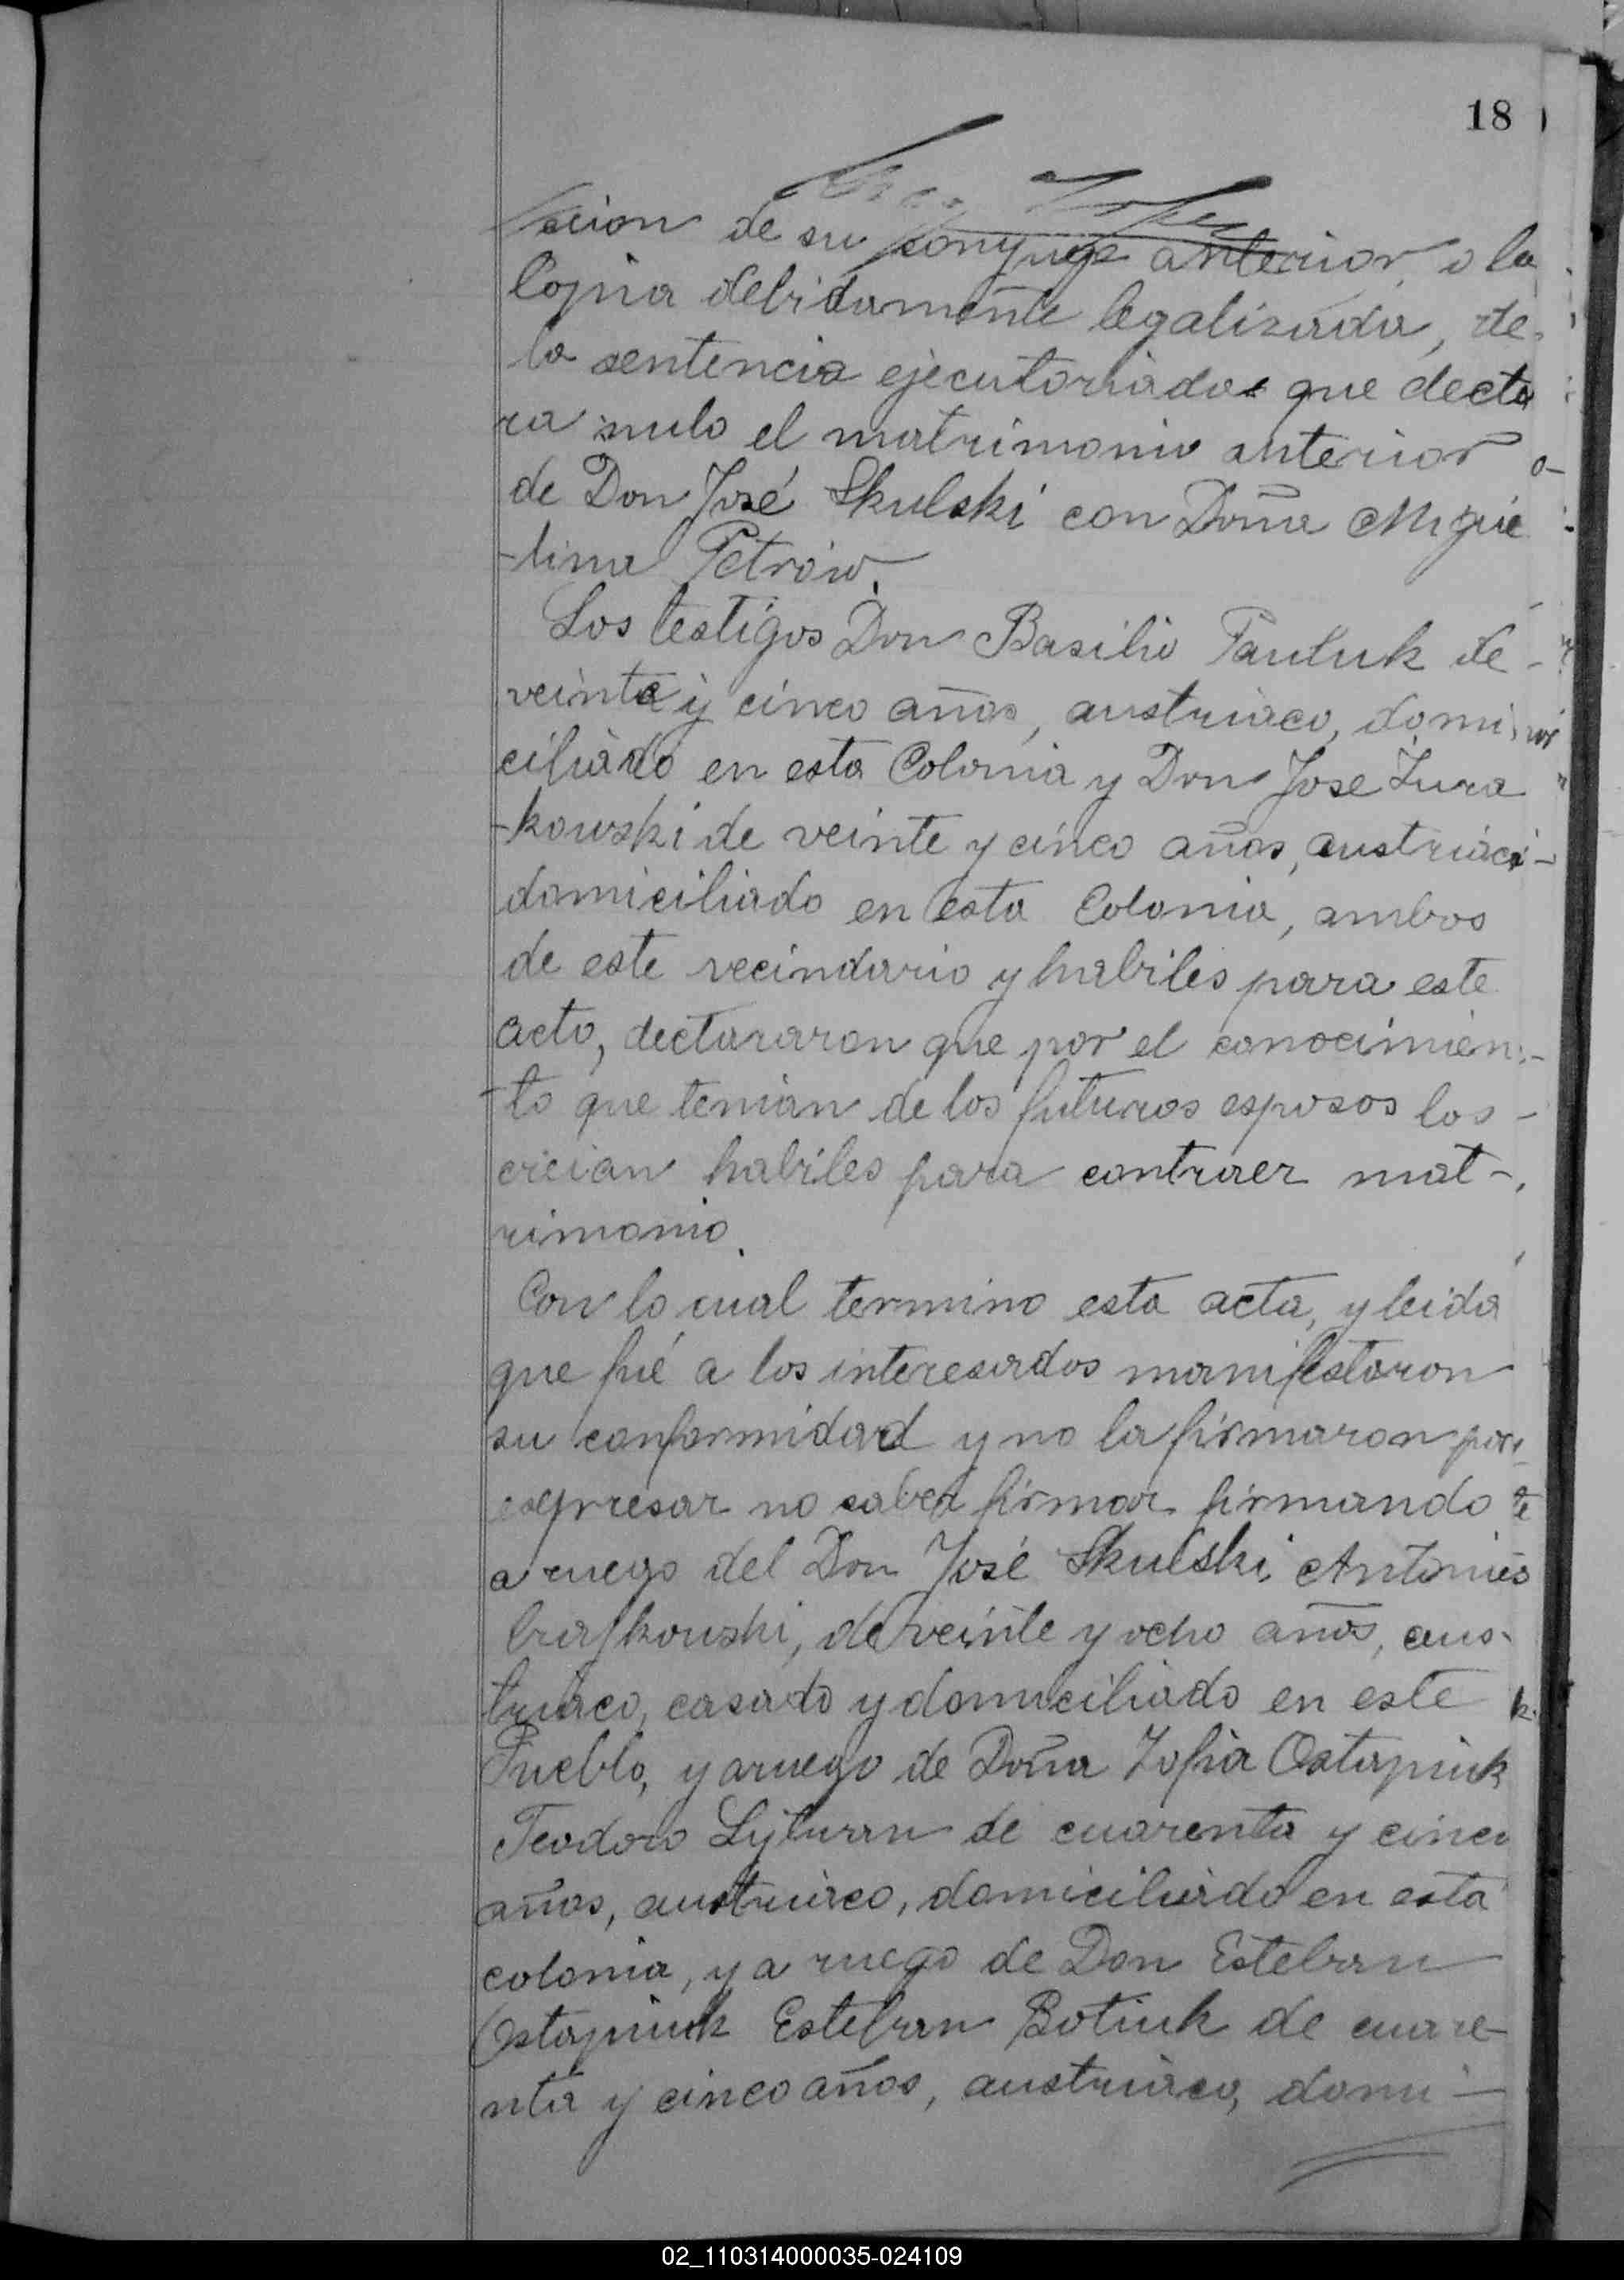 18
cion de su conyuge anterior, o la
Copia debidamente legalizada, de
la sentencia ejecutoriada que decla
ra nulo el matrimonio anterior
de Don José Skulski con Doña Migue
-lina Petrów.
Los testigos Don Basilio Pauluk de -
veinte y cinco años, austriaco, domi
ciliado en esta Colonia y Don Jose Zura
-kowski de veinte y cinco años, austriaco -
domiciliado en esta Colonia, ambos
de este vecindario y habiles para este
acto, declararon que por el conocimien -
-to que tenian de los futuros esposos los -
creian habiles para contraer mat-
rimonio.
Con lo cual termino esta acta, y leida
que fué a los interesados manifestaron
su conformidad y no la firmaron por
expresar no saber firmar firmando
a ruego del Don José Skulski, Antonio
de veinte y ocho años, aus-
triaco, casado y domiciliado en este
Pueblo, y a ruego de Doña Zofia Ostapiuk
Teodoro de cuarenta y cinco
años, austriaco, domiciliado en esta
colonia, y a ruego de Don Esteban
Ostapiuk Esteban Botiuk de cuare-
nta y cinco años, austriaco, domi -
02_110314000035-024109